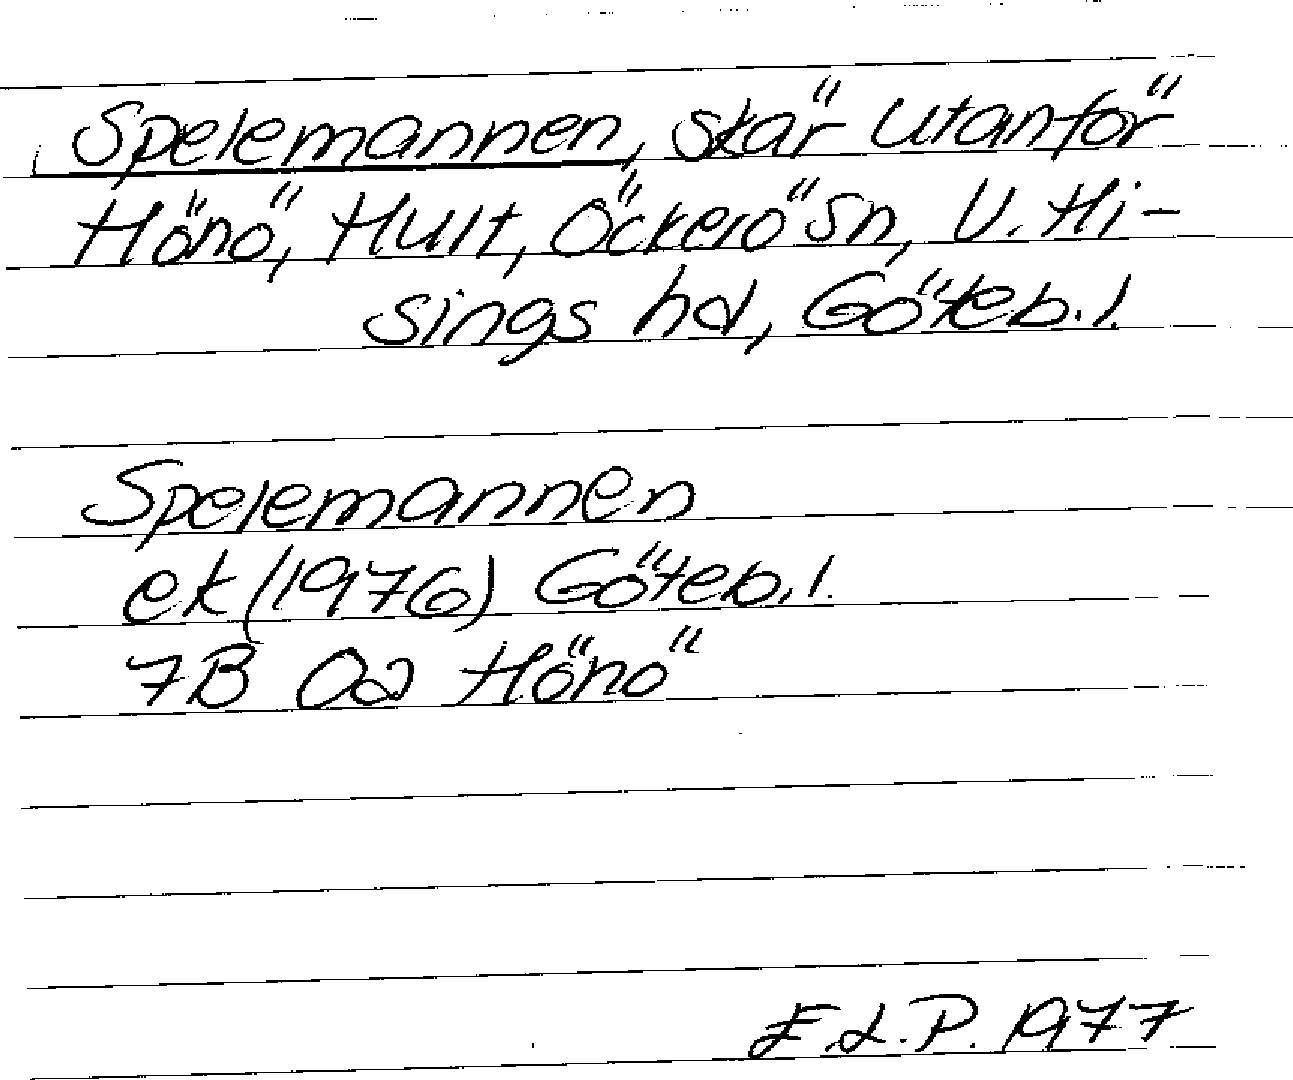 Spelemannen, skär utanför
Hönö, Hult, Öckerö sn, V. Hi-
sings hd, Göteb. l.
Spelemannen
ek (1976) Göteb. l.
7B 0a Hönö
E.L.P. 1977